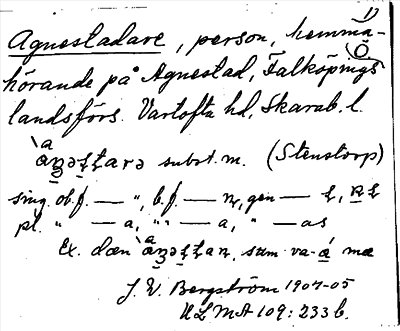 17
Agnestadare, person, hemma-
hörande på Agnestad, Falköpings
landsförs. Vartofta hd, Skarab. l.
subst. m. (Stenstorp)
sing. ob.f. — ", b.f. — n, gen —
pl. " — a, " " — a, " — as
Ex. dæn va- mæ
J. V. Bergström 1904-05
ULMA 109:233 b.